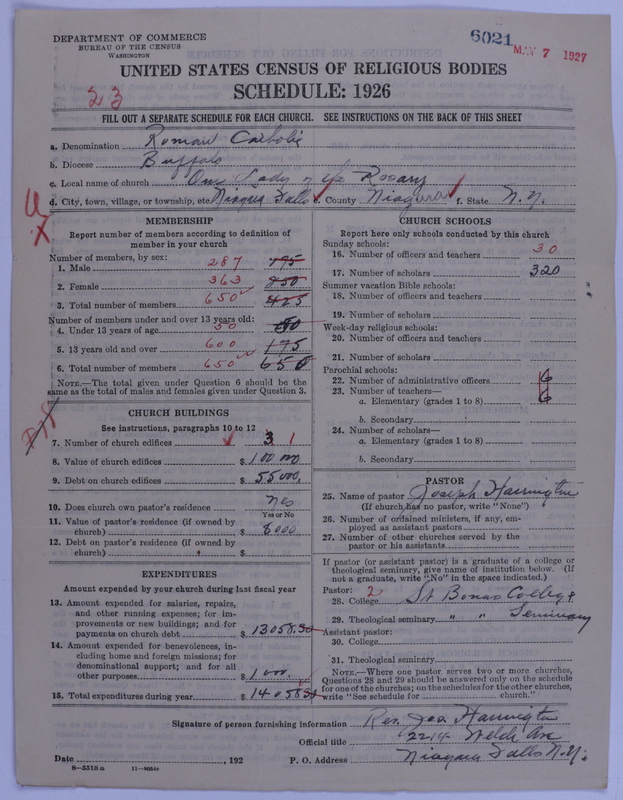 DEPARTMENT OF COMMERCE
BUREAU OF THE CENSUS
WASHINGTON
6021
MAY 7 1927
UNITED STATES CENSUS OF RELIGIOUS BODIES
SCHEDULE: 1926
23
FILL OUT A SEPARATE SCHEDULE FOR EACH CHURCH. SEE INSTRUCTIONS ON THE BACK OF THIS SHEET
a. Denomination Roman Catholic
b. Diocese Buffalo
c. Local name of church Our Lady of the Rosary
d. City, town, village, or township, etc. Niagara Falls e. County Niagara f. State N.Y.
MEMBERSHIP
Report number of members according to definition of
member in your church
Number of members, by sex:
1. Male 287 195
2. Female 363 250
3. Total number of members 650 425
Number of members under and over 13 years old:
4. Under 13 years of age 50
5. 13 years old and over 600 175
6. Total number of members 650 650
NOTE.—The total given under Question 6 should be the
same as the total of males and females given under Question 3.
CHURCH BUILDINGS
See instructions, paragraphs 10 to 12
7. Number of church edifices 3 1
8. Value of church edifices $ 100 000
9. Debt on church edifices $ 55000,
10. Does church own pastor's residence Yes
Yes or No
11. Value of pastor's residence (if owned by
church) $ 8000
12. Debt on pastor's residence (if owned by
church) $
EXPENDITURES
Amount expended by your church during last fiscal year
13. Amount expended for salaries, repairs,
and other running expenses; for im-
provements or new buildings; and for
payments on church debt $ 13058.30
14. Amount expended for benevolences, in-
cluding home and foreign missions; for
denominational support; and for all
other purposes $ 1000.
15. Total expenditures during year $ 14058.30
CHURCH SCHOOLS
Report here only schools conducted by this church
Sunday schools:
16. Number of officers and teachers 30
17. Number of scholars 320
Summer vacation Bible schools:
18. Number of officers and teachers
19. Number of scholars
Week-day religious schools:
20. Number of officers and teachers
21. Number of scholars
Parochial schools:
22. Number of administrative officers 6
23. Number of teachers—
a. Elementary (grades 1 to 8) 6
b. Secondary
24. Number of scholars—
a. Elementary (grades 1 to 8)
b. Secondary
PASTOR
25. Name of pastor Joseph Harrington
(If church has no pastor, write "None")
26. Number of ordained ministers, if any, em-
ployed as assistant pastors
27. Number of other churches served by the
pastor or his assistants
If pastor (or assistant pastor) is a graduate of a college or
theological seminary, give name of institution below. (If
not a graduate, write "No" in the space indicated.)
Pastor: 2
28. College St Bonas College
29. Theological seminary " " Seminary
Assistant pastor:
30. College
31. Theological seminary
NOTE.—Where one pastor serves two or more churches,
Questions 28 and 29 should be answered only on the schedule
for one of the churches; on the schedules for the other churches,
write "See schedule for church."
Signature of person furnishing information Rev. Jos. Harrington
Official title 2214 Welch Ave
Date , 192 P. O. Address Niagara Falls N.Y.
8—5518a 11—9054a